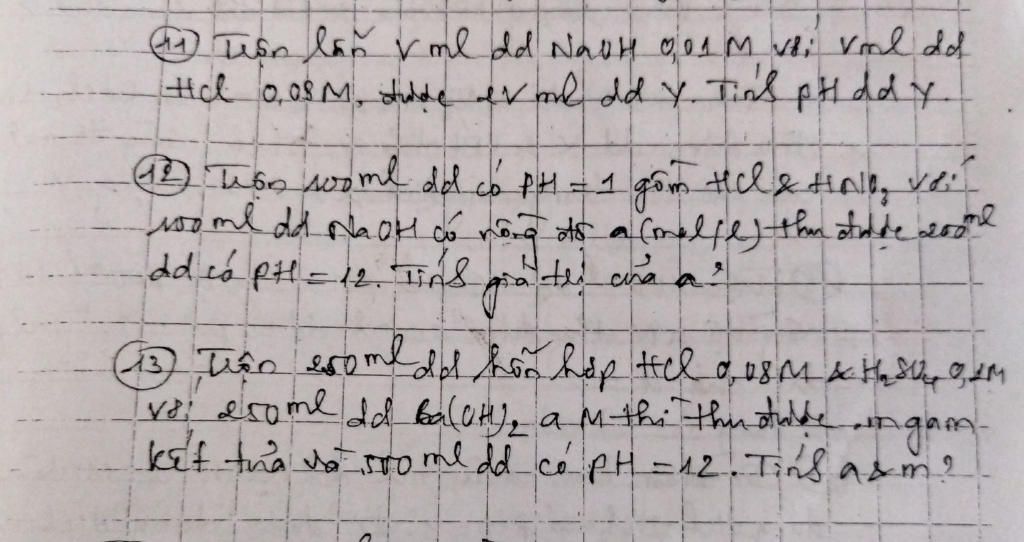 (11) Trộn lẫn V ml dd NaOH 0,01M với V ml dd
HCl 0,08M, được 2V ml dd Y. Tính pH dd Y.
(12) Trộn 100ml dd có pH = 1 gồm HCl & HNO3 với
100ml dd NaOH có nồng độ a (mol/l) thu được 200ml
dd có pH = 12. Tính giá trị của a?
(13) Trộn 250ml dd hỗn hợp HCl 0,08M & H2SO4 0,1M
với 250ml dd Ba(OH)2 a M thì thu được m gam
kết tủa và 500ml dd có pH = 12. Tính a & m?